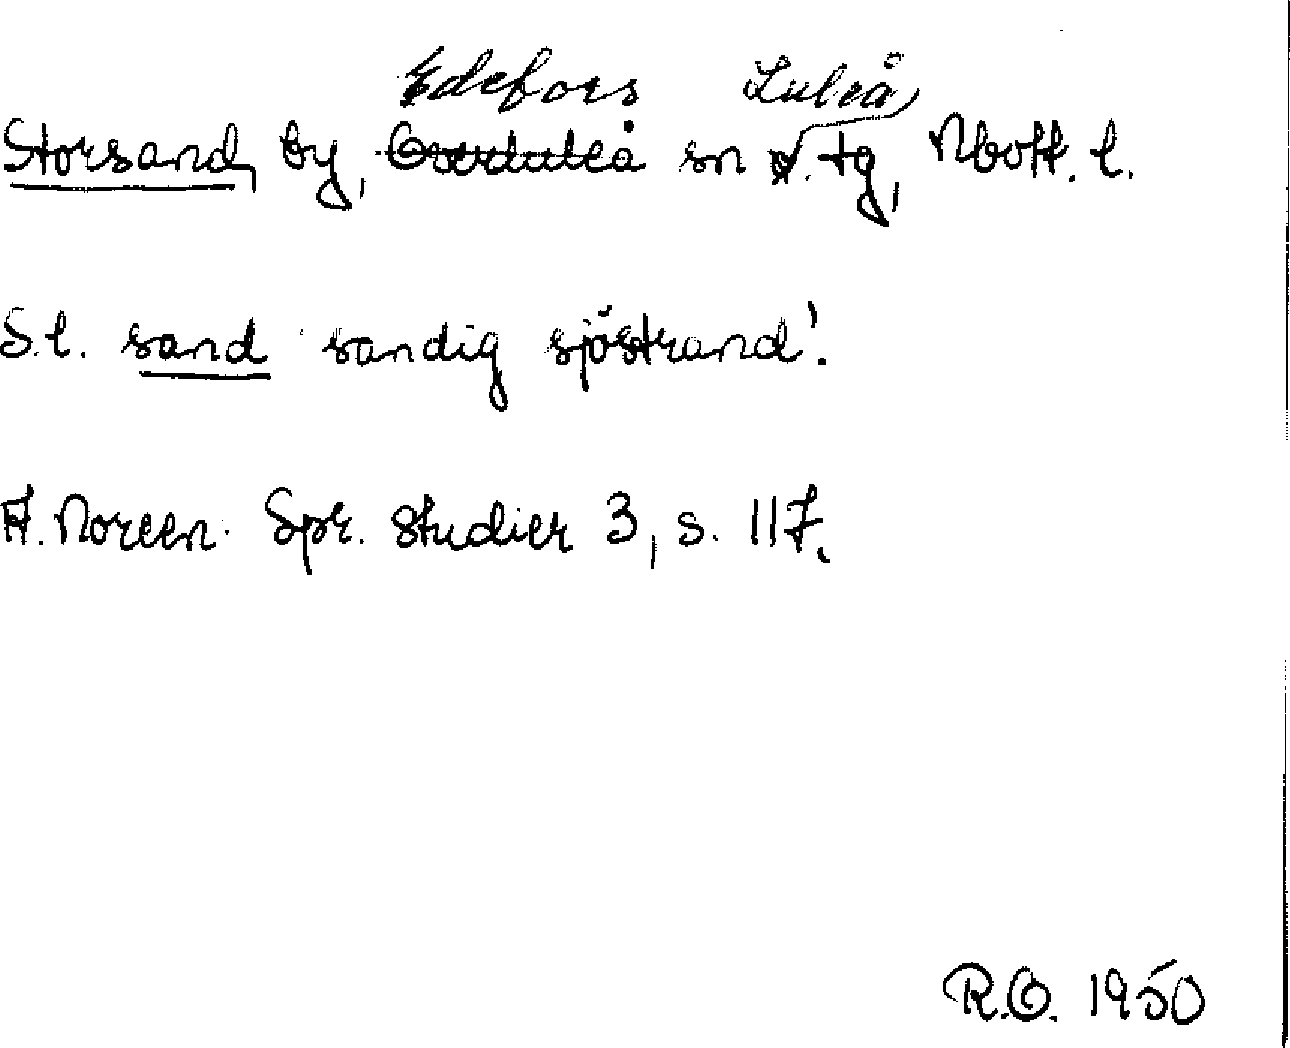 Edefors Luleå
Storsand, by, Överluleå sn s. tg, Nbott. l.
S.l. sand 'sandig sjöstrand'.
A. Noreen. Spr. studier 3, s. 117.
R.O. 1950